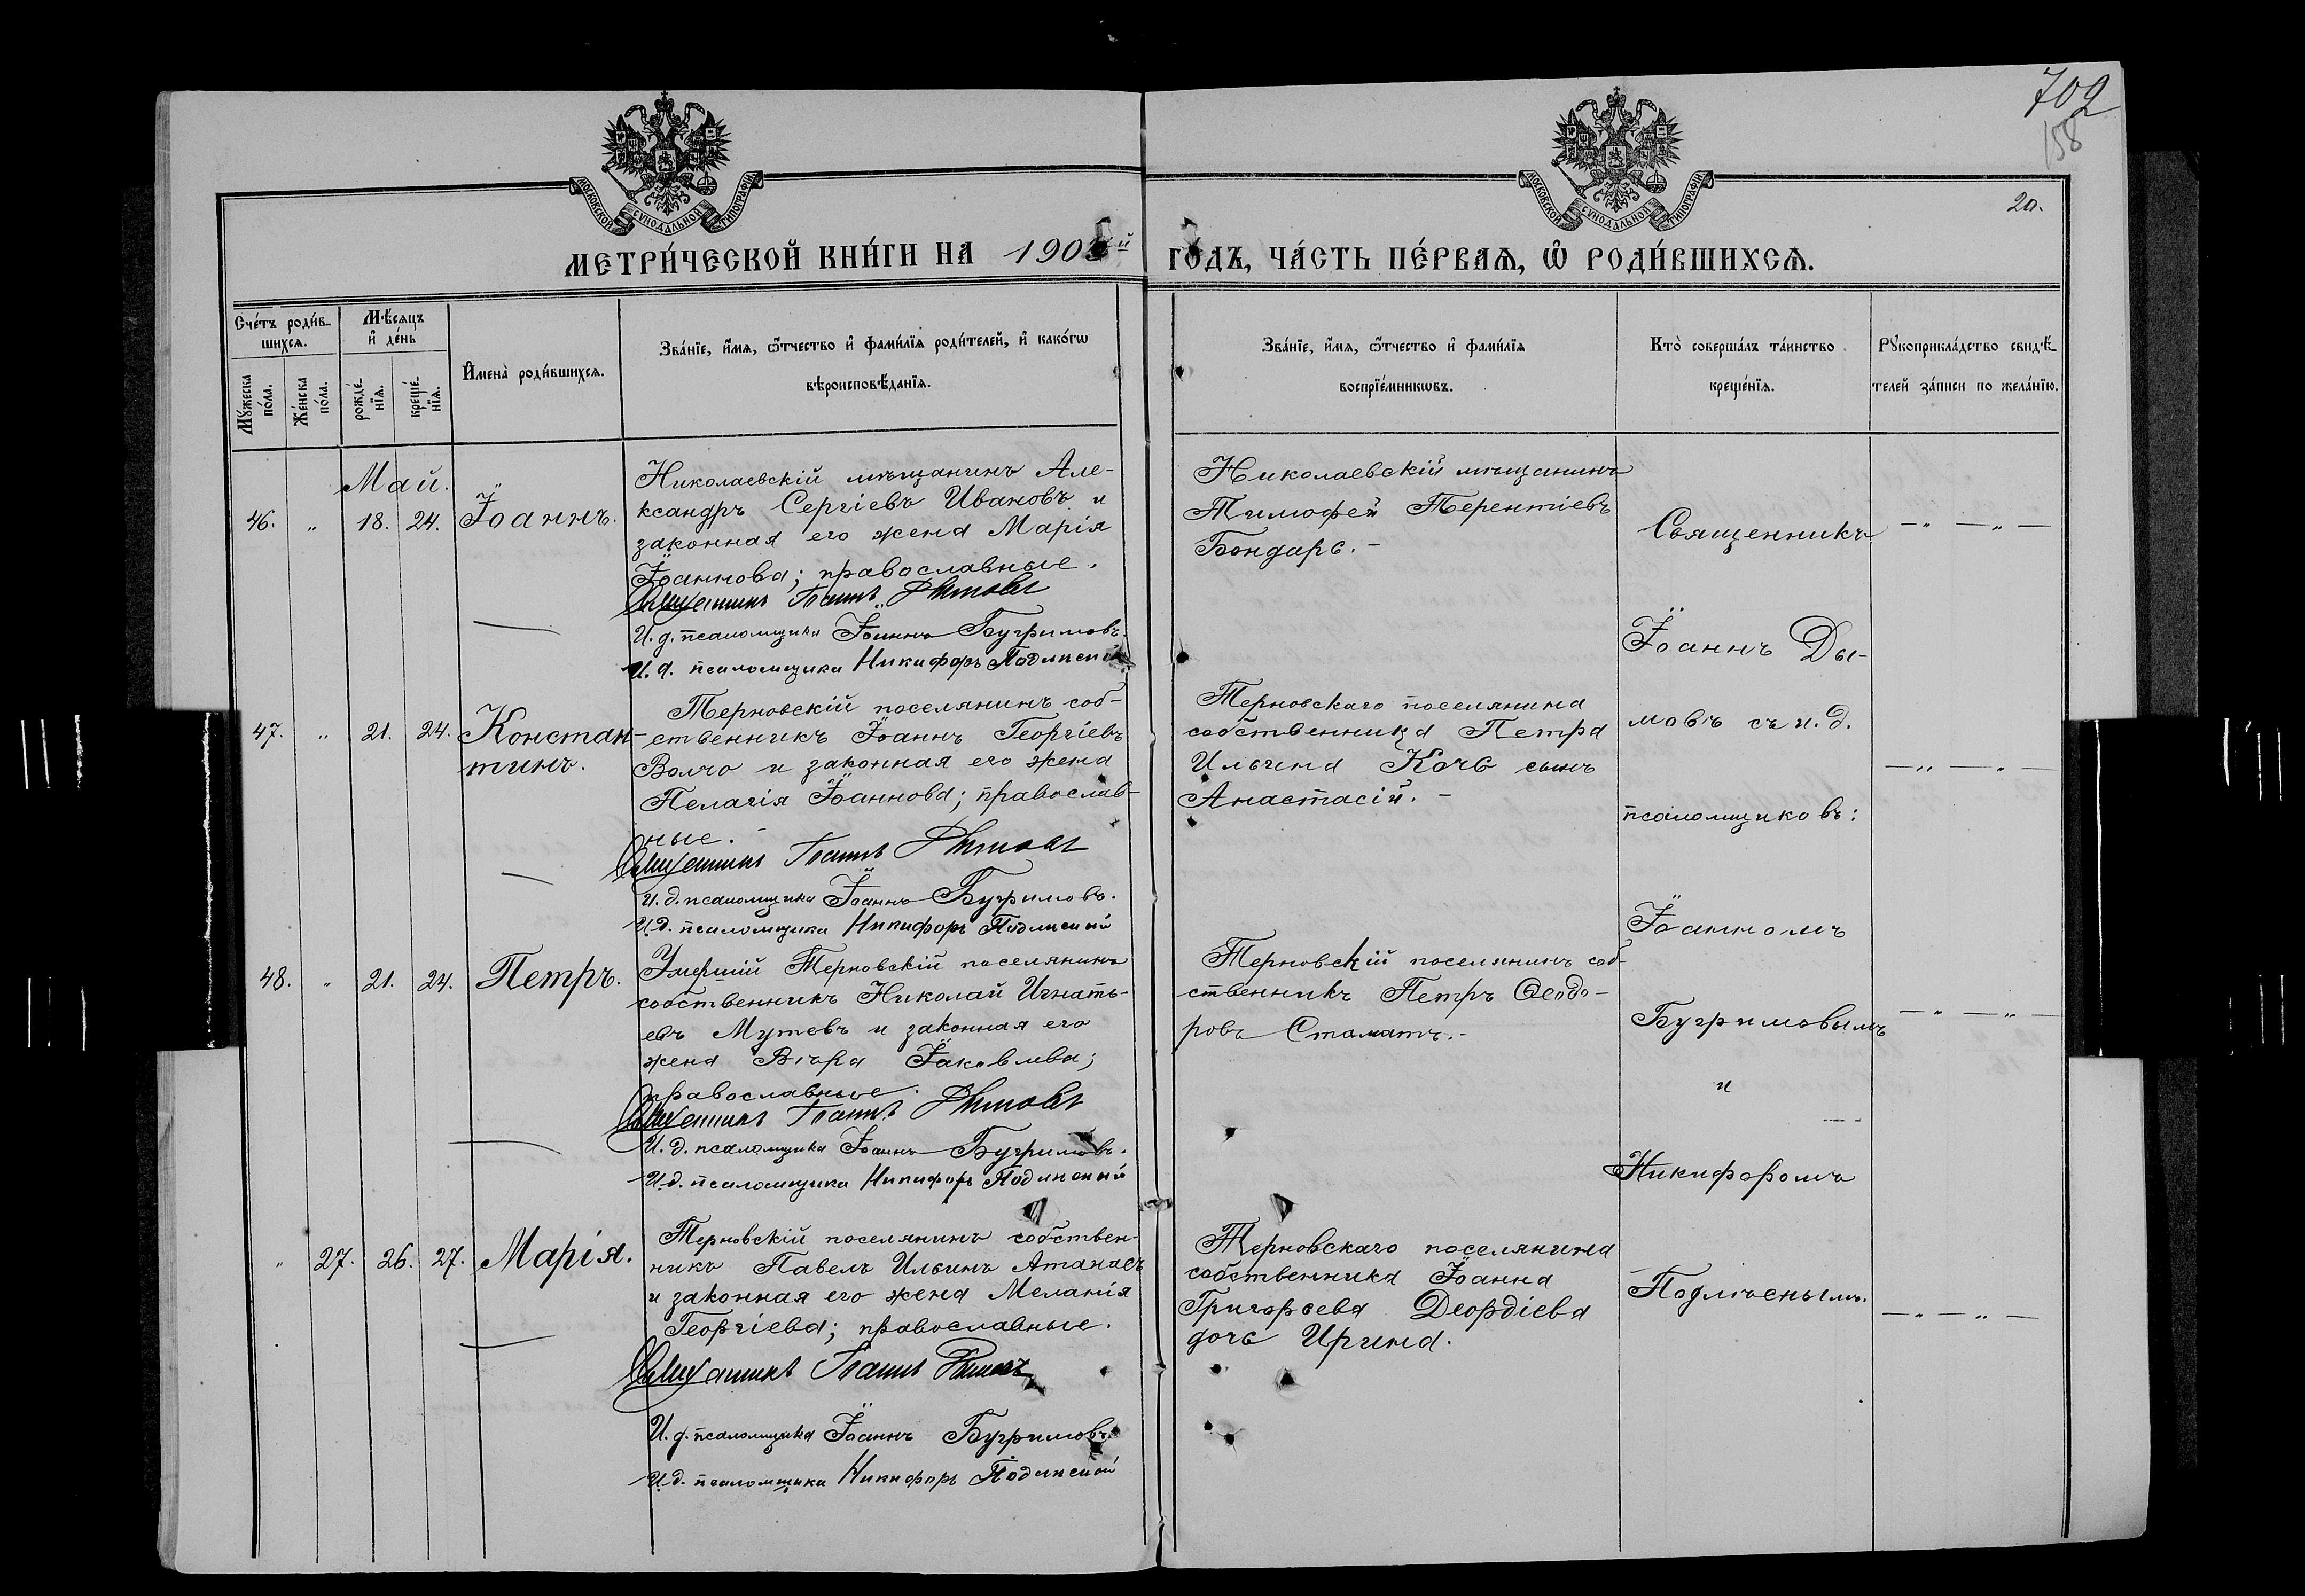 702
158
20.
МОСКОВСКОЙ СѴНОДАЛЬНОЙ ТИПОГРАФІИ
МОСКОВСКОЙ СѴНОДАЛЬНОЙ ТИПОГРАФІИ
МЕТРИ́ЧЕСКОЙ КНИ́ГИ НА 190 й ГО́ДЪ, ЧА́СТЬ ПЕ́РВАѦ, Ѡ҆ РОДИ́ВШИХСѦ.
Сче́тъ роди́в-
шихсѧ.
Мꙋ́жеска по́ла.
Же́нска по́ла.
Мѣ́сѧцъ и҆ де́нь
рожде́-нїѧ.
креще́-нїѧ.
И҆мена̀ роди́вшихсѧ.
Зва́нїе, и҆́мѧ, ѻ҆́тчество и҆ фами́лїѧ роди́телей, и҆ како́гѡ
вѣроисповѣ́данїѧ.
Зва́нїе, и҆́мѧ, ѻ҆́тчество и҆ фами́лїѧ
воспрїе́мникѡвъ.
Кто̀ соверша́лъ та́инство
креще́нїѧ.
Рꙋкоприкла́дство свидѣ́-
телей за́писи по жела́нїю.
Май.
46. " 18. 24. Іоаннъ.
Николаевскій мѣщанинъ Але-
ксандръ Сергіевъ Ивановъ и
законная его жена Марія
Іоаннова; православные.
Священникъ Іоаннъ Дымовъ
И. д. псаломщика Іоаннъ Бугримовъ.
И. д. псаломщика Никифоръ Подлѣсный
Николаевскій мѣщанинъ
Тимофей Терентіевъ
Бондарь. -
47. " 21. 24. Констан-
тинъ.
Терновскій поселянинъ соб-
ственникъ Іоаннъ Георгіевъ
Волчо и законная его жена
Пелагія Іоаннова; православ-
ные. -
Священникъ Іоаннъ Дымовъ
И. д. псаломщика Іоаннъ Бугримовъ.
И. д. псаломщика Никифоръ Подлѣсный
Терновскаго поселянина
собственника Петра
Ильина Кочь сынъ
Анастасій. -
48. " 21. 24. Петръ.
Умершій Терновскій поселянинъ
собственникъ Николай Игнать-
евъ Мутевъ и законная его
жена Вѣра Іаковлева;
православные.
Священникъ Іоаннъ Дымовъ
И. д. псаломщика Іоаннъ Бугримовъ.
И. д. псаломщика Никифоръ Подлѣсный
Терновскій поселянинъ соб-
ственникъ Петръ Ѳеодо-
ровъ Стаматъ. -
" 27. 26. 27. Марія.
Терновскій поселянинъ собствен-
никъ Павелъ Ильинъ Атанаевъ
и законная его жена Меланія
Георгіева; православные.
Священникъ Іоаннъ Дымовъ
И. д. псаломщика Іоаннъ Бугримовъ
И. д. псаломщика Никифоръ Подлѣсный
Терновскаго поселянина
собственника Іоанна
Григорьева Деордіева
дочь Ирина.
Священникъ
Іоаннъ Ды-
мовъ съ и. д.
псаломщиковъ:
Іоанномъ
Бугримовымъ
и
Никифоромъ
Подлѣснымъ.